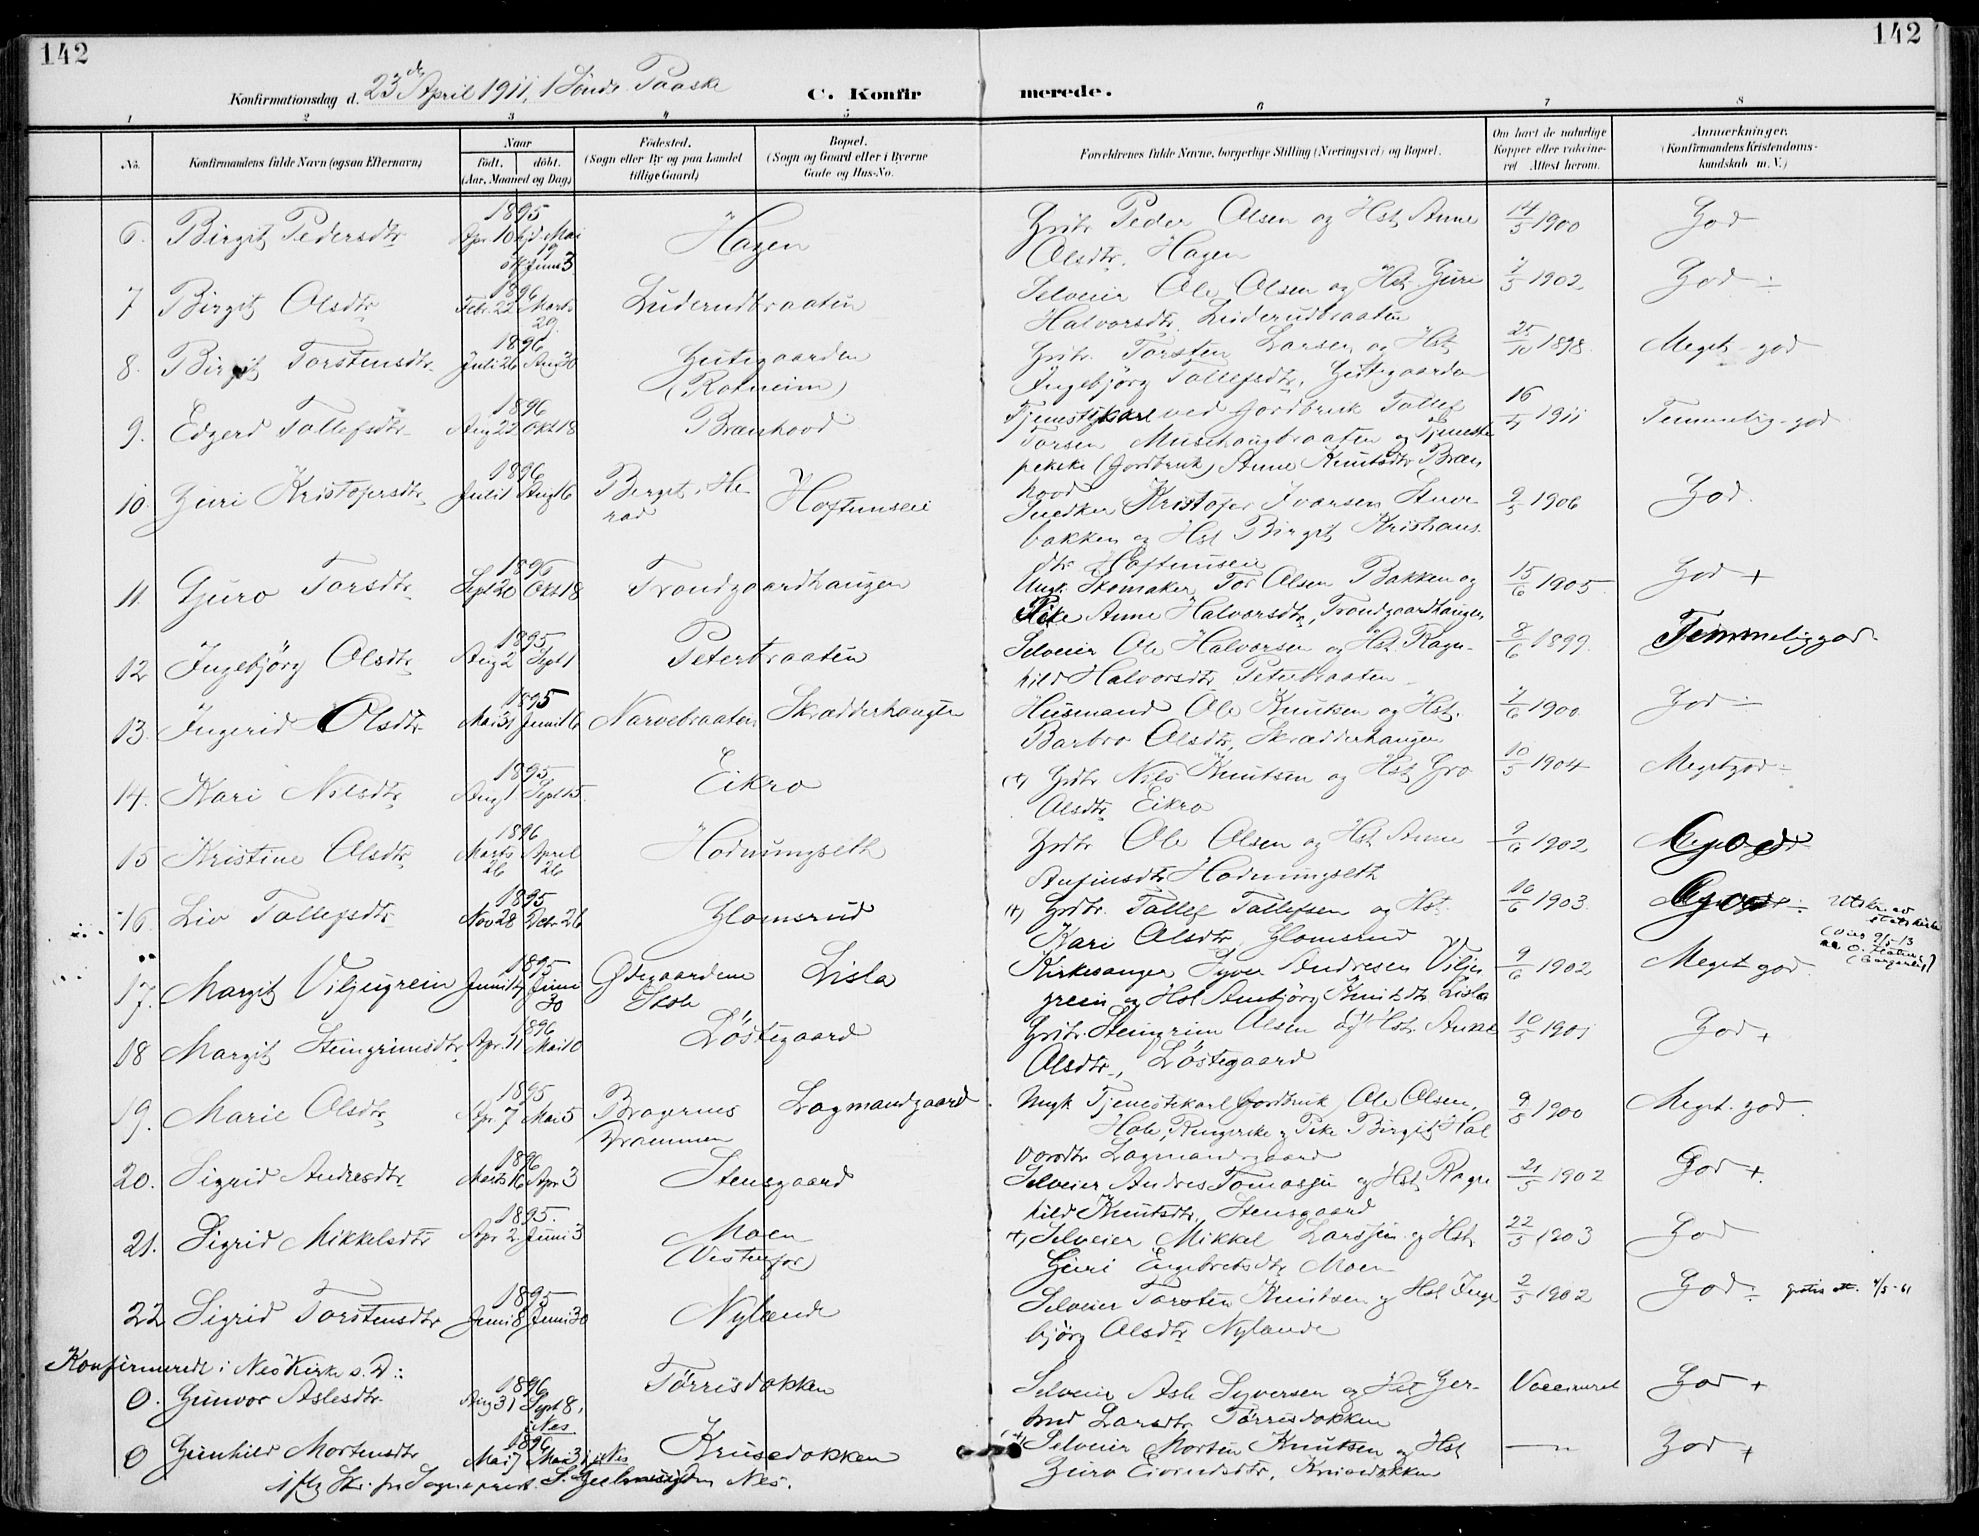 142
142
Konfirmationsdag d. 23de April 1911, 1 Sönd. Paaske
C. Konfirmerede.
1 2 3 4 5 6 7 8
No. Konfirmandens fulde Navn (ogsaa Efternavn) Naar født, døbt. (Aar, Maaned og Dag) Fødested. (Sogn eller By og paa Landet tillige Gaard) Bopæl. (Sogn og Gaard eller i Byerne Gade og Hus-No. Forældrenes fulde Navne, borgerlige Stilling (Næringsvei) og Bopæl. Om havt de naturlige Kopper eller vaccineret Attest herom. Anmerkninger. (Konfirmandens Kristendomskundskab m. V.)
6. Birgit Pedersdtr. 1895 Apr. 10 hjd. Mai 19 stf. Juni 3 Hagen Grdbr. Peder Olsen og Hst. Anne 14/5 1900 God
Olsdtr. Hagen
7 Birgit Olsdtr. 1896 Febr. 22 Marts 29. Luderudbraaten Selveier Ole Olsen og Hst. Guri 7/5 1902 God ÷
Halvorsdtr. Luderudbraaten
8. Birgit Torstensdtr. 1896 Juli 26 Aug 30 Gutegaarden (Rotneim) Grdbr. Torsten Larsen og Hst. 25/10 1898. Meget god
Ingebjörg Tollefsdtr. Gutegaarden
9. Edgerd Tollefsdtr. 1896 Aug 22 Okt 18 Brænhovd Tjenestekarl ved Jordbruk Tollef 16/4 1911 Temmelig god
Torsen Musehaugbraaten og Tjeneste
pekeke (Jordbruk) Anne Knutsdtr. Bræn
hovd
10. Guri Kristofersdtr. 1896 Juli 1 Aug 16 Berget, He rad Hoftunseie Snedker Kristofer Ivarsen Stuve 9/5 1906 God.
bakken og Hst Birgit Kristians
dtr. Hoftunseie
11. Guro Torsdtr. 1895 Sept 20 Okt 18 Trondgaardhaugen Ungk. Skomaker Tor Olsen Bakken og 15/6 1905. God +
Pike Anne Halvorsdtr., Trondgaardhaugen
12 Ingebjörg Olsdtr. 1895 Aug 2 Sept 1 Peterbraaten Selveier Ole Halvorsen og Hst. Ragn- 8/6 1899. Temmelig god
hild Halvorsdtr. Peterbraaten
13. Ingerid Olsdtr. 1895 Mai 31 Juni 16 Narvebraaten Skrædderhaugen Husmand Ole Knutsen og Hst. 7/6 1900. God ÷
Barbro Olsdtr, Skrædderhaugen
14. Kari Nilsdtr. 1895 Aug 1 Sept 15. Eikro Grdbr. Nils Knutsen og Hst. Gro 10/5 1904 Meget god ÷
Olsdtr. Eikro
15 Kristine Olsdtr. 1896 Marts 26 April 26 Hodnungseth Grdbr. Ole Olsen og Hst Anne 9/6 1902 God
Anfinsdtr. Hodnungseth
16. Liv Tollefsdtr. 1895 Nov 28 Decbr 26 Glomsrud Grdbr. Tollef Tollefsen og Hst. 10/6 1903. God ÷ Utskr. av statskirken
Kari Olsdtr. Glomsrud
17. Margit Viljugrein 1895 Juni Juni 30 Ødegaardene Skole Lisla Kirkesanger Syver Andresen Vilju 9/6 1902 Meget god
grein og Hst Ambjörg Knutsdtr. Lisla
18 Margit Steingrimsdtr. 1896 Apr. 11 Mai 10 Löstegaard Grdbr. Steingrim Olsen og Hst. Anne 10/5 1901 God +
Olsdtr., Löstegaard
19. Marie Olsdtr. 1895 Apr 7 Mai 5 Bragernes Drammen Lagmandgaard Ungk. Tjenestekarl (Jordbruk) Ole Olsen, 9/8 1900 Meget god.
Hole, Ringerike og Pike Birgit Hal
vorsdtr. Lagmandsgaard
20. Sigrid Andresdtr. 1896 Marts 16 Apr 3 Stensgaard Selveier Andres Tomassen og Hst. Ragn 21/5 1902 God +
hild Knutsdtr. Stensgaard
21. Sigrid Mikkelsdtr 1895. Apr 2 Juni 3 Moen (Vestenfor) Selveier Mikkel Larssen og Hst. 22/5 1903 God
Guri Engebretsdtr. Moen
22 Sigrid Torstensdtr. 1895 Juni 8 Juni 30 Nylænde Selveier Torsten Knutsen og Hst Inge 2/5 1902 God ÷ gratis att. 4/5-61
björg Olsdtr Nylænde
Konfirmerede i Nes Kirke s. D.:
0. Gunvor Aslesdtr. 1896 Aug 31 Sept 8, i Nes Törrisdokken Selveier Asle Syversen og Hst Ger- Vaccineret God +
trud Larsdtr. Törrisdokken
0 Gunhild Mortensdtr 1896 Mai 7 Mai 31 i Nes Krusedokken Selveier Morten Knutsen og Hst — " — God +
Guro Eivindsdtr., Krusedokken
iflg. Skr. fra Sogneprest Nes.